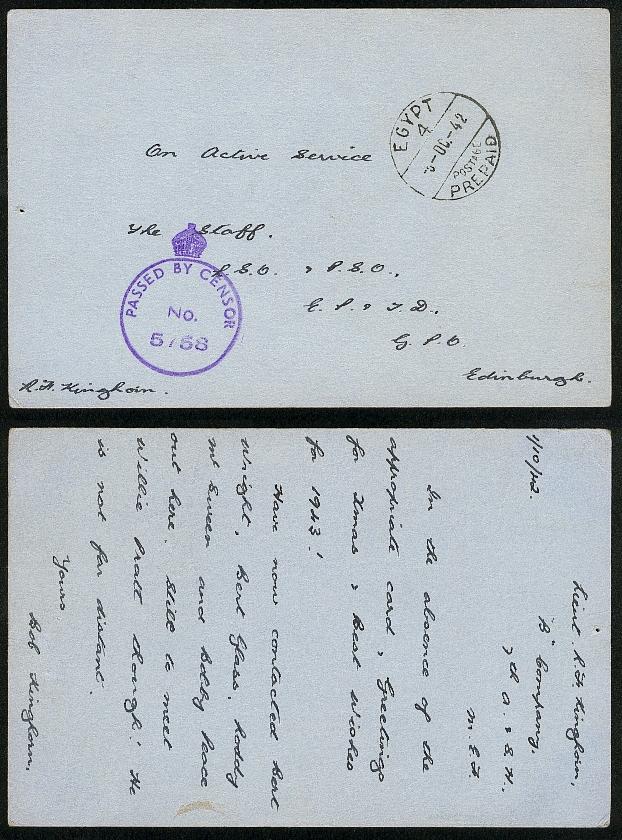 EGYPT
4
-OC-42
POSTAGE
PREPAID
On Active Service
The Staff.
P.S.O.,
E.P. & T.D.,
G.P.O.
Edinburgh.
PASSED BY CENSOR
No.
5758
R.H. Kinghorn.
Lieut. R.H. Kinghorn,
"B" Company,
7th A. & S.H.
M.E.F.
1/10/42.
In the absence of the
appropriate card, Greetings
for Xmas & Best Wishes
for 1943!
Have now contacted Bert
Wright, Bert Glass, Roddy
McSween and Bobby Peace
out here. Still to meet
Willie Pratt though! He
is not far distant.
Yours
Bob Kinghorn.